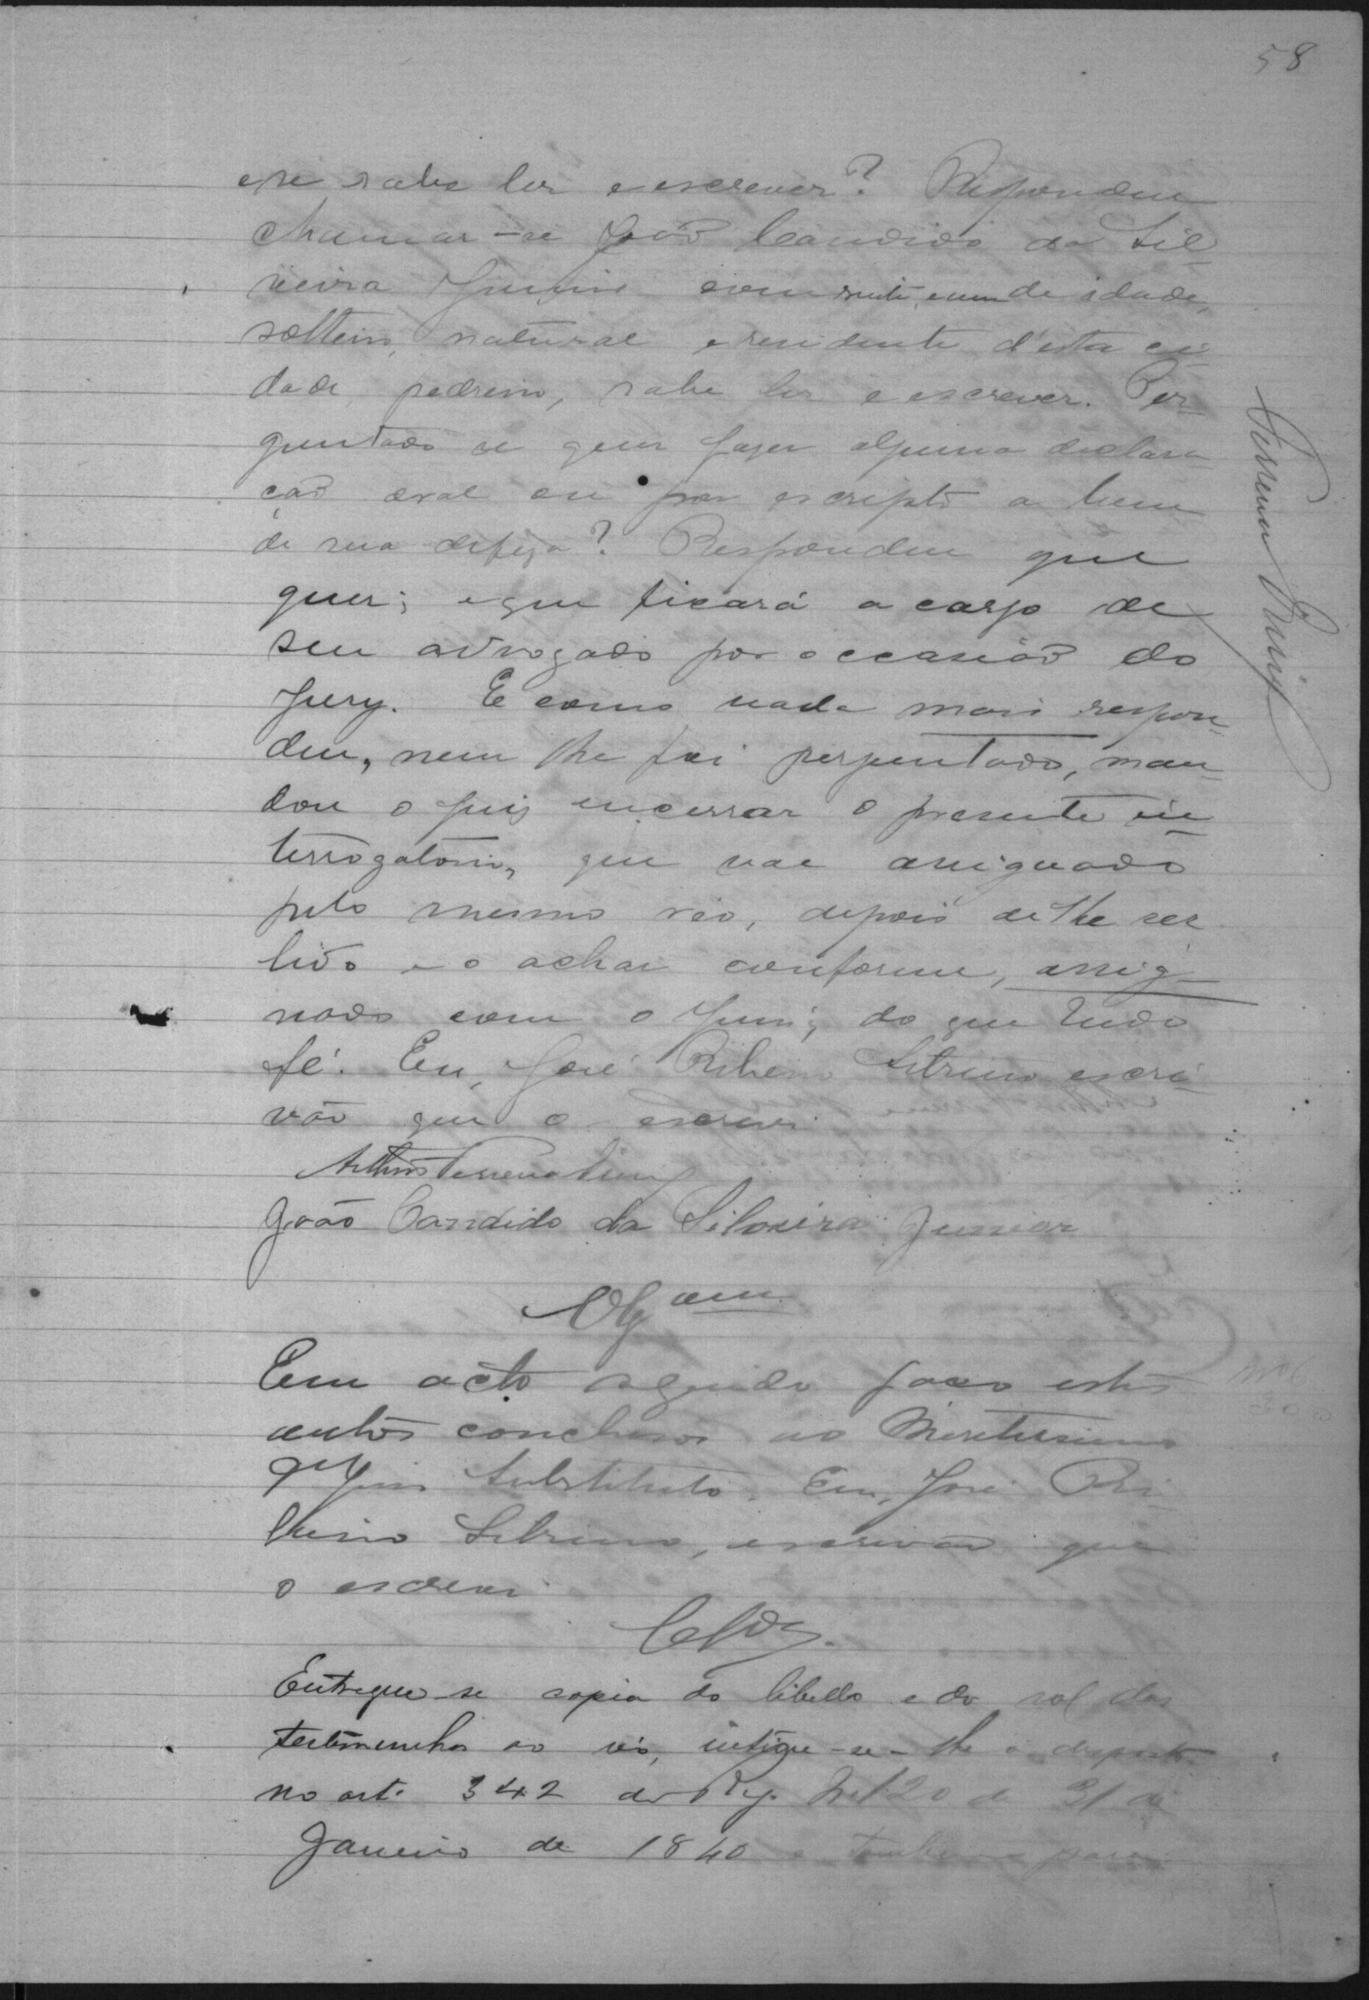 58
e se sabe ler e escrever? Respondeu
chamar-se João Candido da Sil-
veira Junior com vinte e um de idade,
solteiro, natural e residente d'esta ci-
dade, pedreiro, sabe ler e escrever. Per-
guntado se quer fazer alguma declara
ção oral ou por escripto a bem
de sua defeza? Respondeu que
quer; e que ficará a cargo de
seu advogado por occasião do
Jury. E como nada mais respon-
deu, nem lhe foi perguntado, man-
dou o Juiz encerrar o presente in-
terrogatorio, que vae assignado
pelo mesmo réo, depois de lhe ser
lido e o achar conforme, assig-
nado com o Juiz; do que tudo
fé. Eu, José Ribeiro escri-
vão que o escrevi.
João Candido da Silveira Junior
Em acto seguido faço estes
autos conclusos ao Meritissimo
Juiz Substituto. Eu, José Ri-
beiro escrivão que
o escrevi
Entregue-se copia do libello e do rol das
testemunhas ao réo, intime-se-lhe o disposto
no art. 342 do Reg. Nº 120 de 31 de
Janeiro de 1840 e tambem para